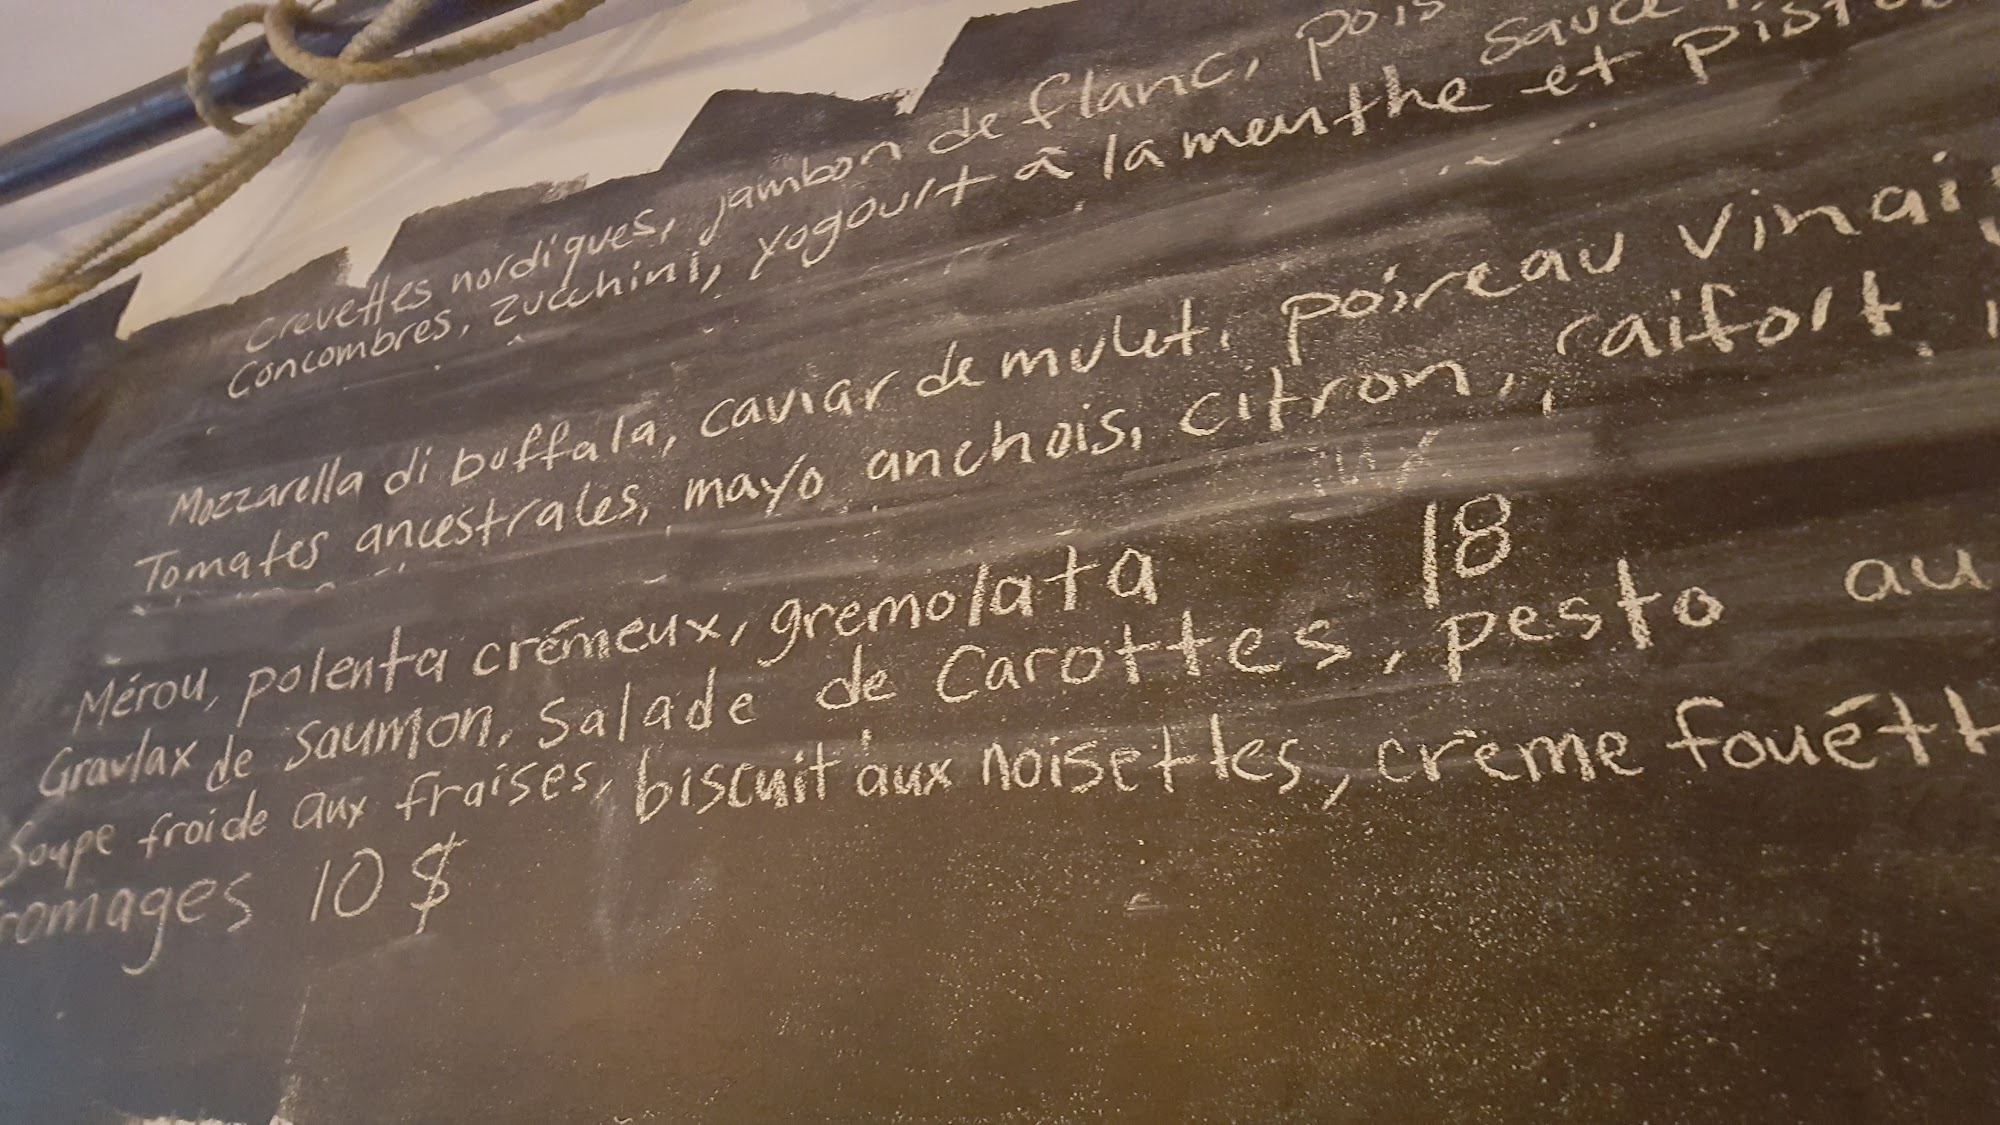 Crevettes nordiques, jambon de flanc, pois
sauce
Concombres, zucchini, yogourt à la menthe et
Mozzarella di buffala, caviar de mulet, poireau
Tomates ancestrales, mayo anchois, citron, raifort
Mérou, polenta crémeux, gremolata 18
Gravlax de saumon, salade de carottes, pesto au
Soupe froide aux fraises, biscuit aux noisettes, crème
romages 10 $